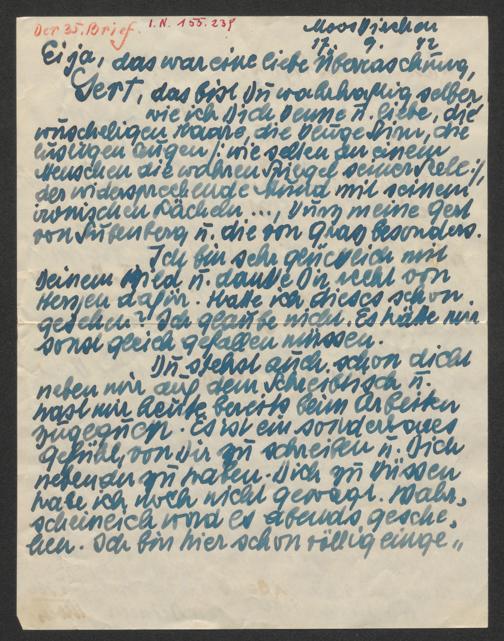 Der 35. Brief. I.N. 155.238
Mooskirchen
17. 9. 42
Eija, das war eine liebe Überaschung,
Gert, das bist Du wahrhaftig selber
wie ich Dich kenne u. liebe, die
wuscheligen Haare, die Denge Kinn, die
lustigen Augen /: wie selten an einem
Menschen die wahren Spiegel seiner Seele :/,
der widersprechende Mund mit seinem
ironischen Lächeln ..., kurz meine Gert
von u. die von Graz besonders.
Ich bin sehr glücklich mit
Deinem Bild u. danke Dir recht von
Herzen dafür. Hatte ich dieses schon
gesehen? Ich glaube nicht. Es hätte mir
sonst gleich gefallen müssen.
Du stehst auch schon dicht
neben mir auf dem Schreibtisch u.
hast mir heute bereits beim Arbeiten
zugeguckt. Es ist ein sonderbares
Gefühl, von Dir zu schreiben u. Dich
neben mir zu haben. Dich zu küssen
habe ich noch nicht gewagt. Wahr-
scheinlich wird es abends gesche-
hen. Ich bin hier schon völlig einge-